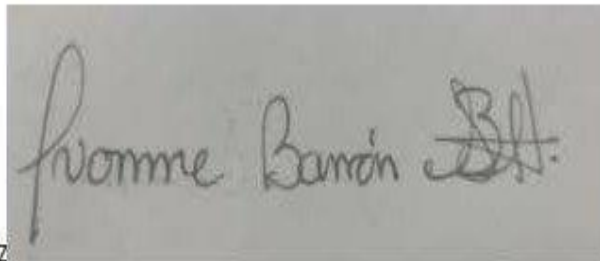 Ivonne Barrón BH.